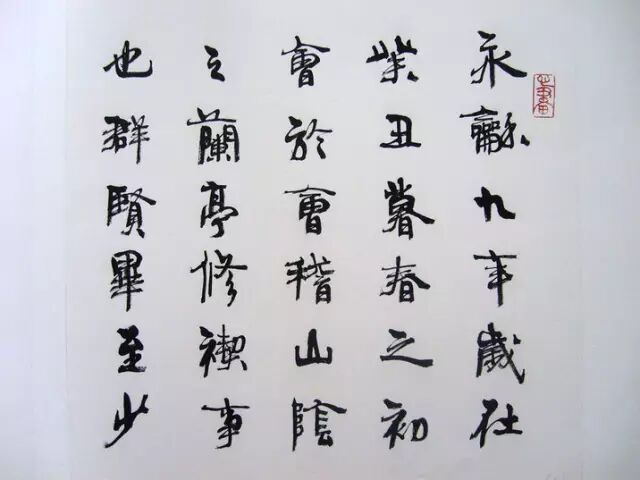 永龢九年歲在
癸丑暮春之初
會於會稽山陰
之蘭亭修禊事
也群賢畢至少